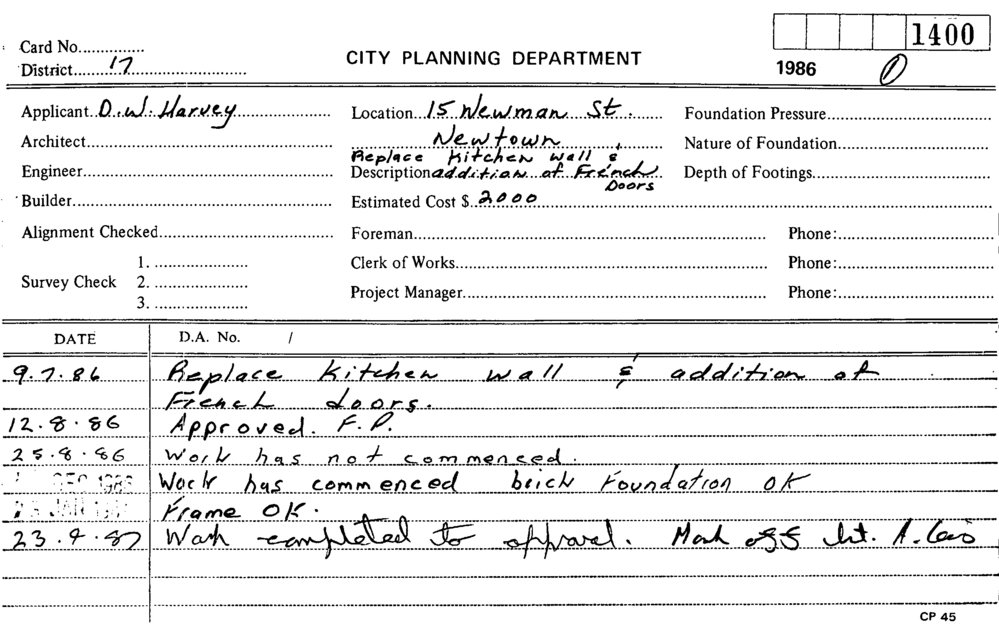 Card No...............
1400
District.........17..........................
CITY PLANNING DEPARTMENT
1986 1
Applicant D.W. Harvey
Location 15 Newman St.
Foundation Pressure
Architect
Newtown
Nature of Foundation
Replace Kitchen wall &
Engineer
Description addition of French
Depth of Footings
Doors
Builder
Estimated Cost $ 2000
Alignment Checked
Foreman
Phone:
1.
Clerk of Works
Phone:
Survey Check 2.
Project Manager
Phone:
3.
DATE
D.A. No. /
9.7.86 Replace Kitchen wall & addition of
French doors.
12.8.86 Approved. F.P.
25.8.86 Work has not commenced.
DEC 1986 Work has commenced brick Foundation OK
JAN Frame OK.
23.9.87 Work completed to approval. Mark off list.
CP 45